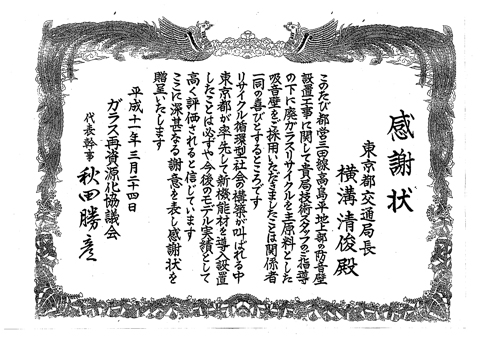 感謝状
東京都交通局長
横溝清俊殿
このたび都営三田線高島平地上部の防音壁
設置工事に関して貴局技術スタッフのご指導
の下に廃ガラスリサイクルを主原料とした
吸音壁をご採用いただきましたことは関係者
一同の喜びとするところです
リサイクル循環型社会の構築が叫ばれる中
東京都が率先して新機能材を導入設置
したことは必ずや今後のモデル実績として
高く評価されると信じています
ここに深甚なる謝意を表し感謝状を
贈呈いたします
平成十一年三月二十四日
ガラス再資源化協議会
代表幹事 秋田勝彦